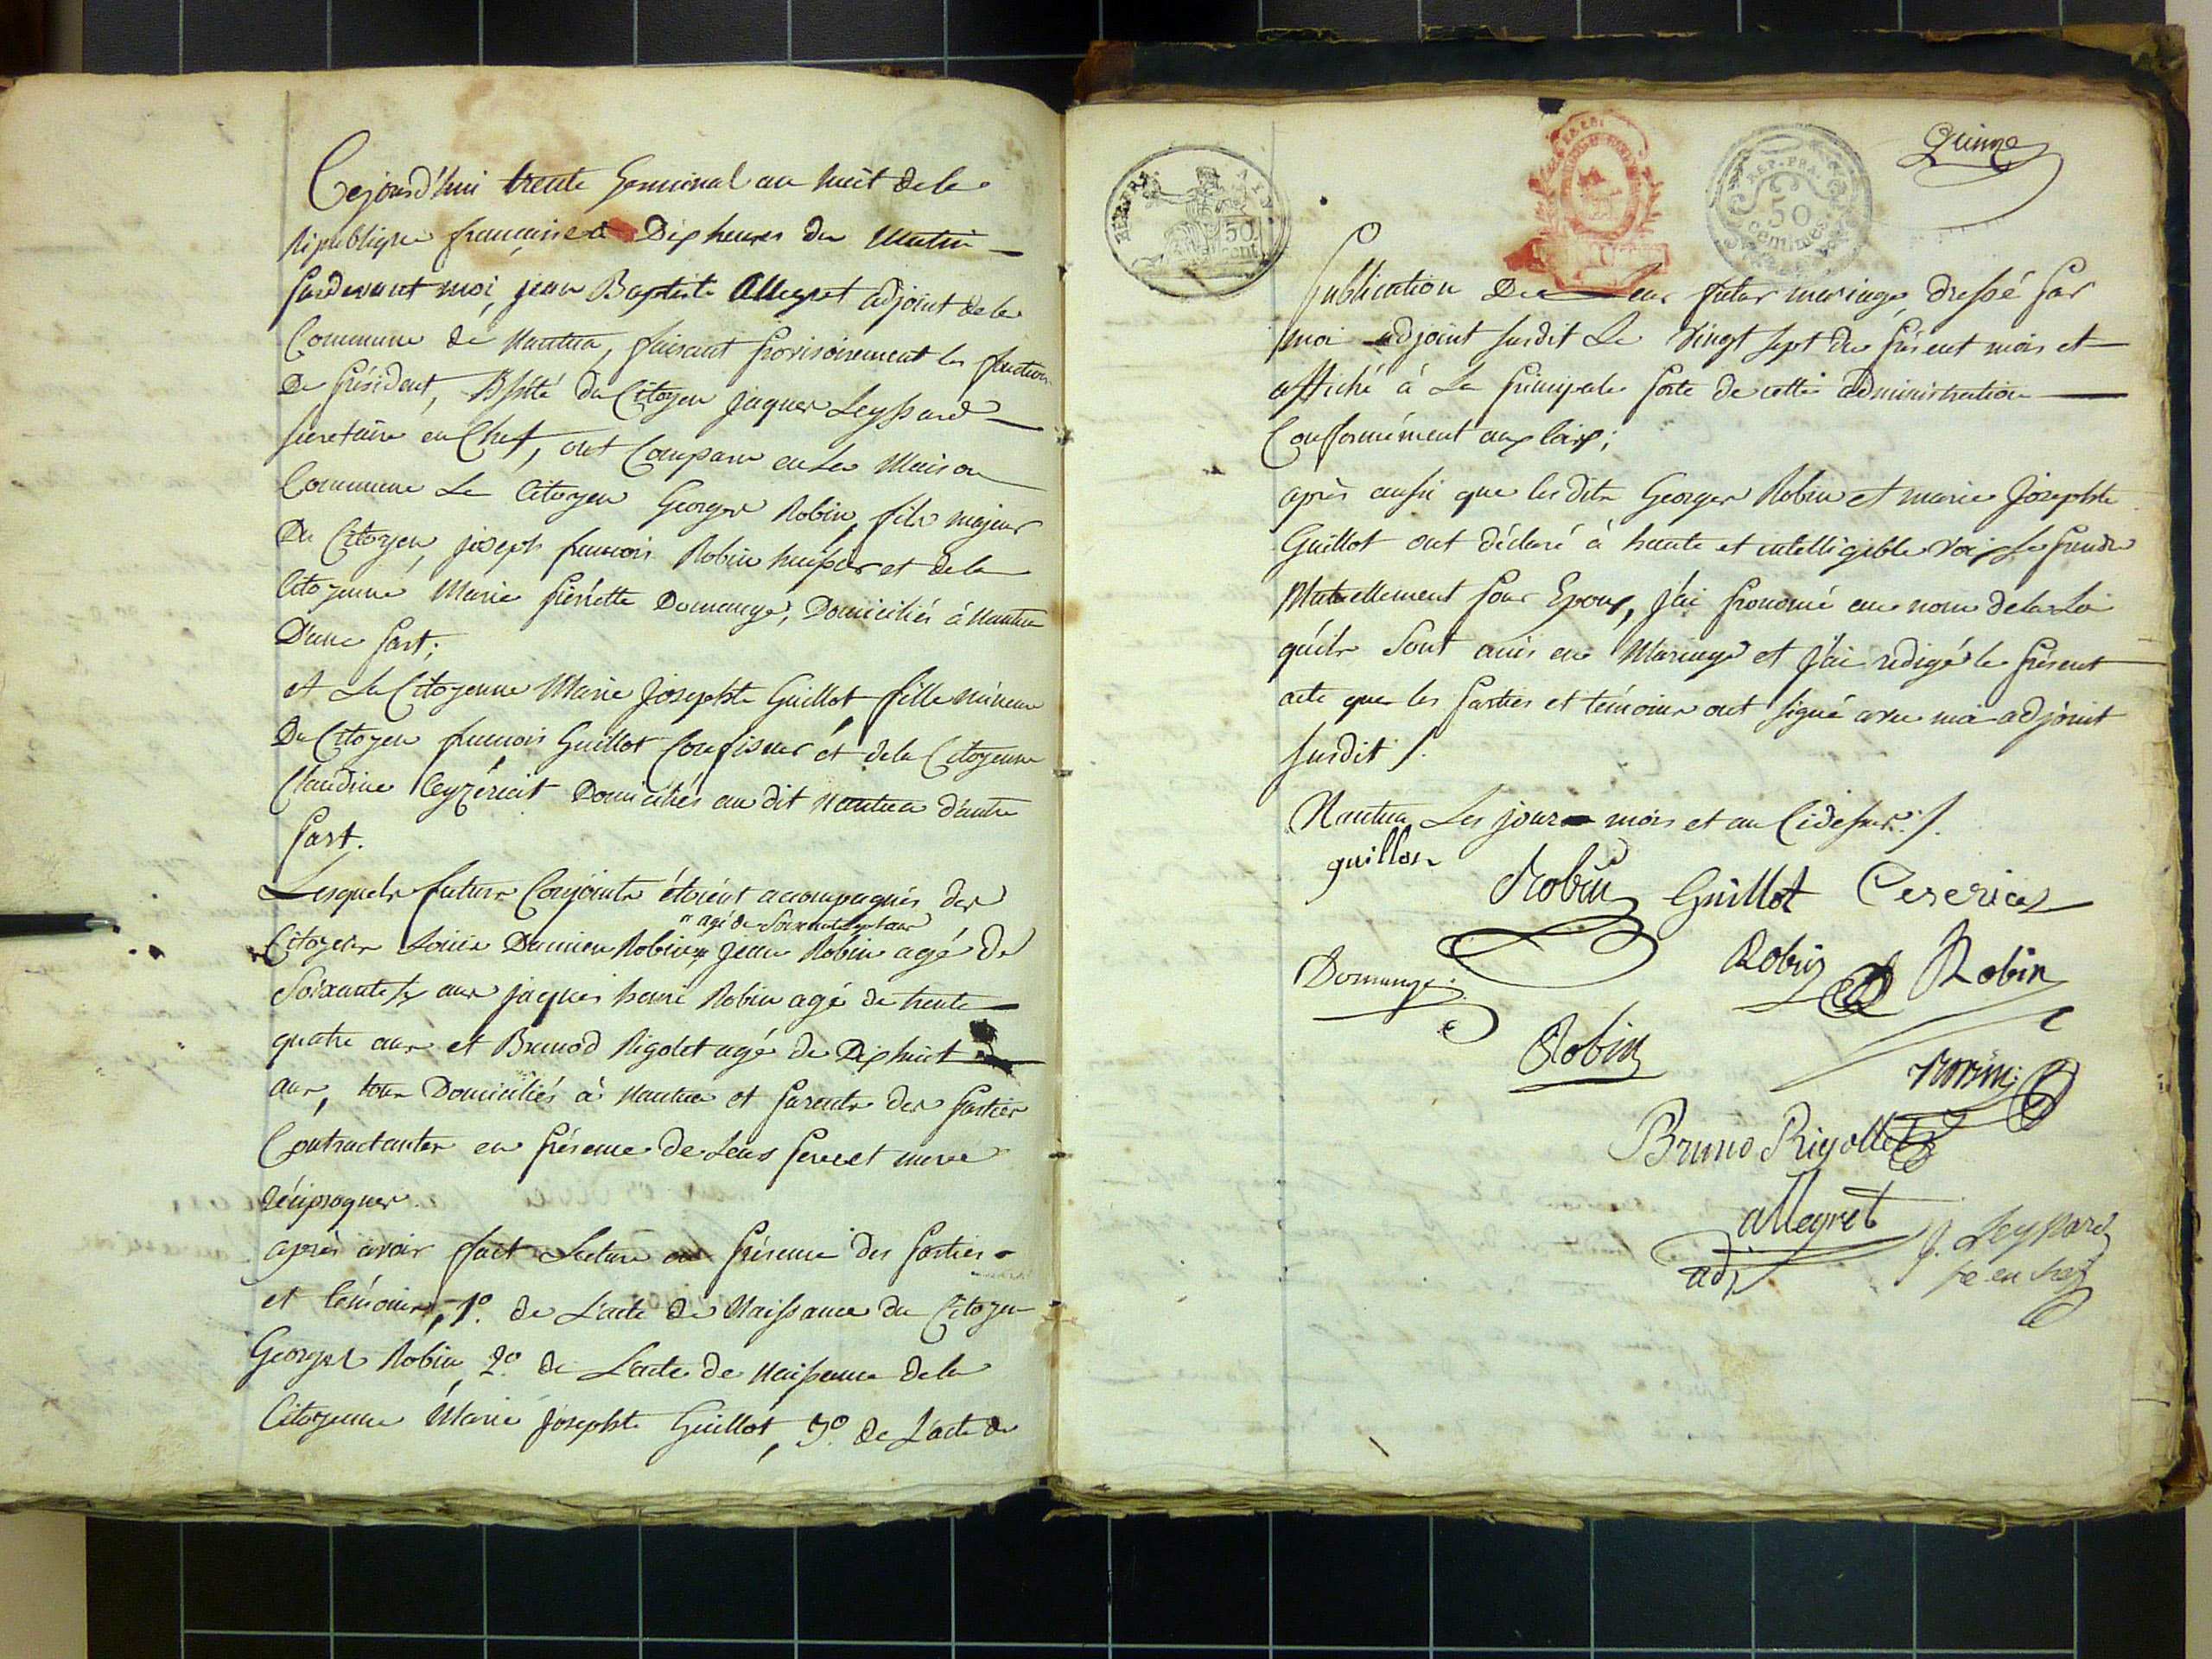 Cejourd'hui trente Germinal an huit de la
République française à Dix heures du Matin
pardevant moi, jean Baptiste Allegret adjoint de la
Commune de Nantua, faisant provisoirement les fonctions
De président, Assisté du Citoyen jaques Leyssard
secretaire en Chef, ont Comparu en La Maison
Commune Le Citoyen Georges Robin, fils majeur
Du Citoyen joseph francois Robin huissier et de la
Citoyenne Marie pierrette Domange, Domiciliés à Nantua
D'une part;
et La Citoyenne Marie Josephte Guillot fille mineure
Du Citoyen francois Guillot Confiseur et de la Citoyenne
Claudine Ceyzériat Domiciliés au dit Nantua d'autre
part.
Lesquels futurs Conjoints étoient accompagnés des
" agé de Soixante sept ans
Citoyens Louis Damien Robin " Jean Robin agé de
Soixante ans jaques henri Robin agé de trente
quatre ans et Brunod Rigolet agé de Dix huit
ans, tous Domiciliés à Nantua et parents des parties
Contractantes en présence de Leurs pere et mere
réciproques.
après avoir fait Lecture en présence des parties
et témoins, 1º. de L'acte de Naissance du Citoyen
Georges Robin, 2º. de L'acte de Naissance de la
Citoyenne Marie Josephte Guillot, 3º. de L'acte de
Quinze
REP. FRA.
50
cent.
REP. FRA.
50
centimes
publication De Leur futur mariage, dressé par
moi adjoint susdit Le Vingt sept du présent mois et
affiché à La principale porte de cette administration
Conformément aux loix;
après aussi que les dits Georges Robin et marie Josephte
Guillot ont déclaré à haute et intelligible voix se prendre
Mutuellement pour Epoux, j'ai prononcé au nom de la Loi
qu'ils Sont unis en Mariage et j'ai redigé le présent
acte que les parties et témoins ont signé avec moi adjoint
susdit /.
Nantua Les jour mois et an Cidessus /.
guillot
Robin Guillot Ceseriat
Domange
Robin Robin
Robin
Bruno Rigollet
allegret
adj
J. Leyssard
se en chef